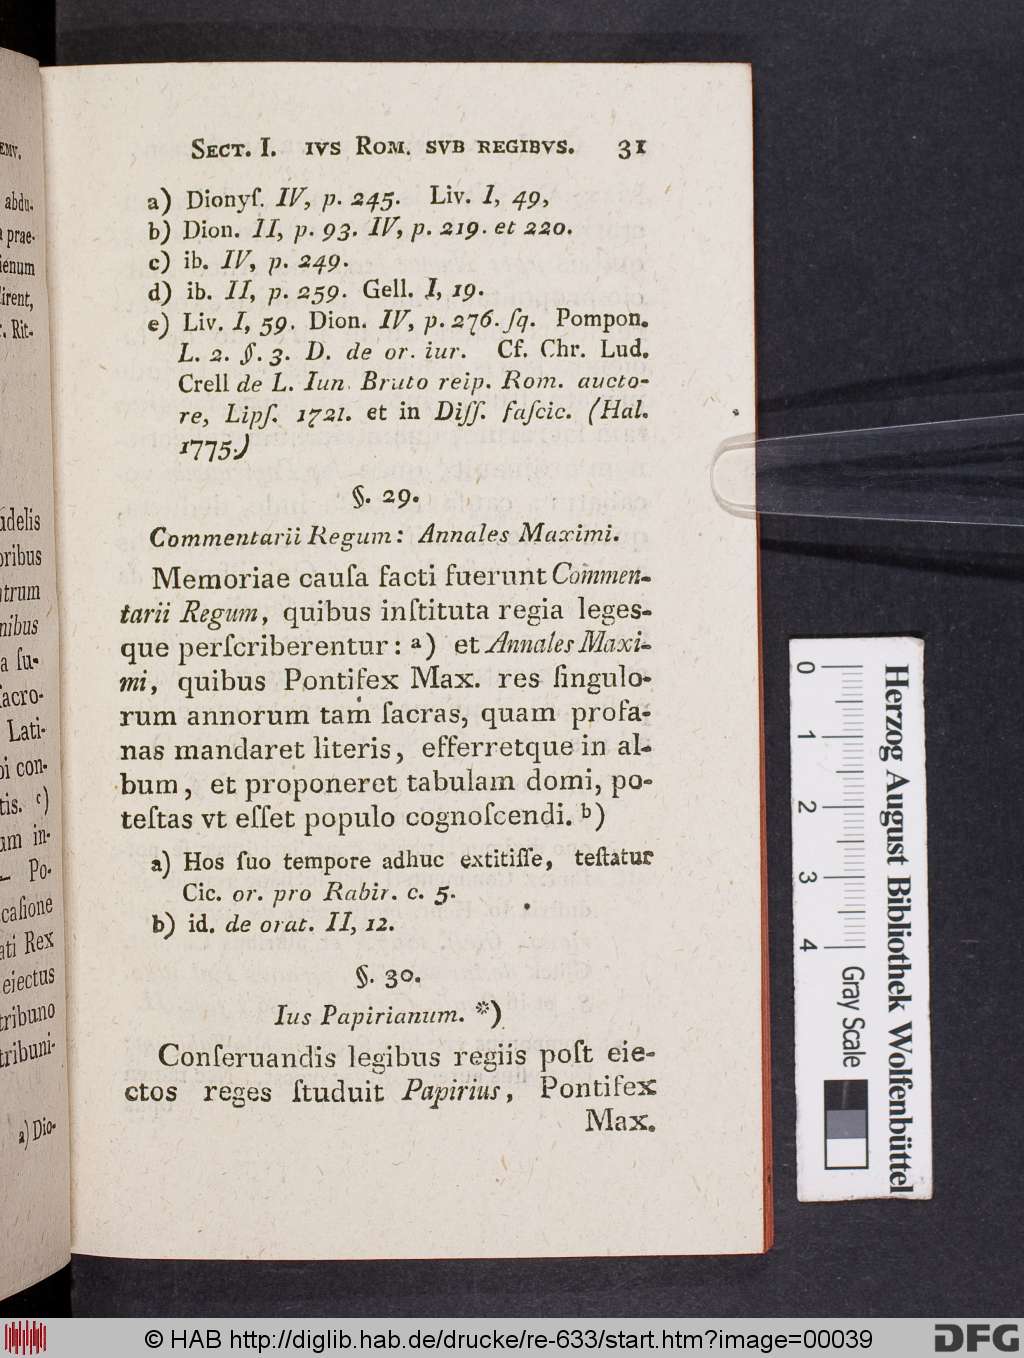 SECT. I. IVS ROM. SVB REGIBVS. 31
a) Dionyſ. IV, p. 245. Liv. I, 49,
b) Dion. II, p. 93. IV, p. 219. et 220.
c) ib. IV, p. 249.
d) ib. II, p. 259. Gell. I, 19.
e) Liv. I, 59. Dion. IV, p. 276. ſq. Pompon.
L. 2. §. 3. D. de or. iur. Cf. Chr. Lud.
Crell de L. Iun. Bruto reip. Rom. aucto-
re, Lipſ. 1721. et in Diſſ. faſcic. (Hal.
1775.)
§. 29.
Commentarii Regum: Annales Maximi.
Memoriae cauſa facti fuerunt Commen-
tarii Regum, quibus inſtituta regia leges-
que perſcriberentur: a) et Annales Maxi-
mi, quibus Pontifex Max. res ſingulo-
rum annorum tam ſacras, quam profa-
nas mandaret literis, efferretque in al-
bum, et proponeret tabulam domi, po-
teſtas vt eſſet populo cognoſcendi. b)
a) Hos ſuo tempore adhuc extitiſſe, teſtatur
Cic. or. pro Rabir. c. 5.
b) id. de orat. II, 12.
§. 30.
Ius Papirianum. *)
Conſeruandis legibus regiis poſt eie-
ctos reges ſtuduit Papirius, Pontifex
Max.
abdu-
prae-
ienum
lirent,
Rit-
udelis
oribus
atrum
nibus
a ſu-
ſacro-
Lati-
bi con-
tis. c)
um in-
— Po-
caſione
ati Rex
eiectus
tribuno
tribuni-
a) Dio-
0
1
2
3
4
Herzog August Bibliothek Wolfenbüttel
Gray Scale
© HAB http://diglib.hab.de/drucke/re-633/start.htm?image=00039
DFG